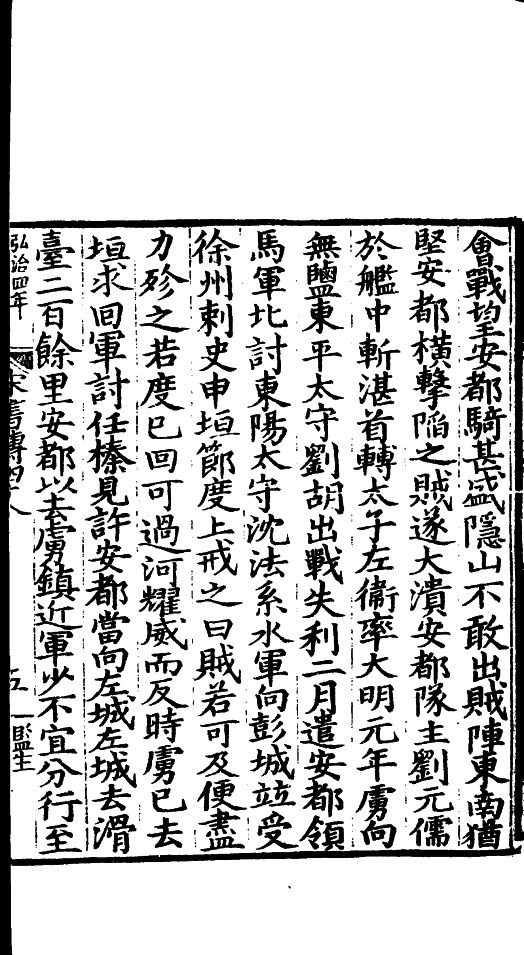 會戰望安都騎甚盛隱山不敢出賊陣東南猶
堅安都橫擊陷之賊遂大潰安都隊主劉元儒
於艦中斬湛首轉太子左衞率大明元年虜向
無鹽東平太守劉胡出戰失利二月遣安都領
馬軍北討東陽太守沈法系水軍向彭城竝受
徐州刺史申垣節度上戒之曰賊若可及便盡
力殄之若度已回可過河耀威而反時虜已去
垣求回軍討任榛見許安都當向左城左城去滑
臺二百餘里安都以去虜鎮近軍少不宜分行至
弘治四年
宋書傳四八
五
監生